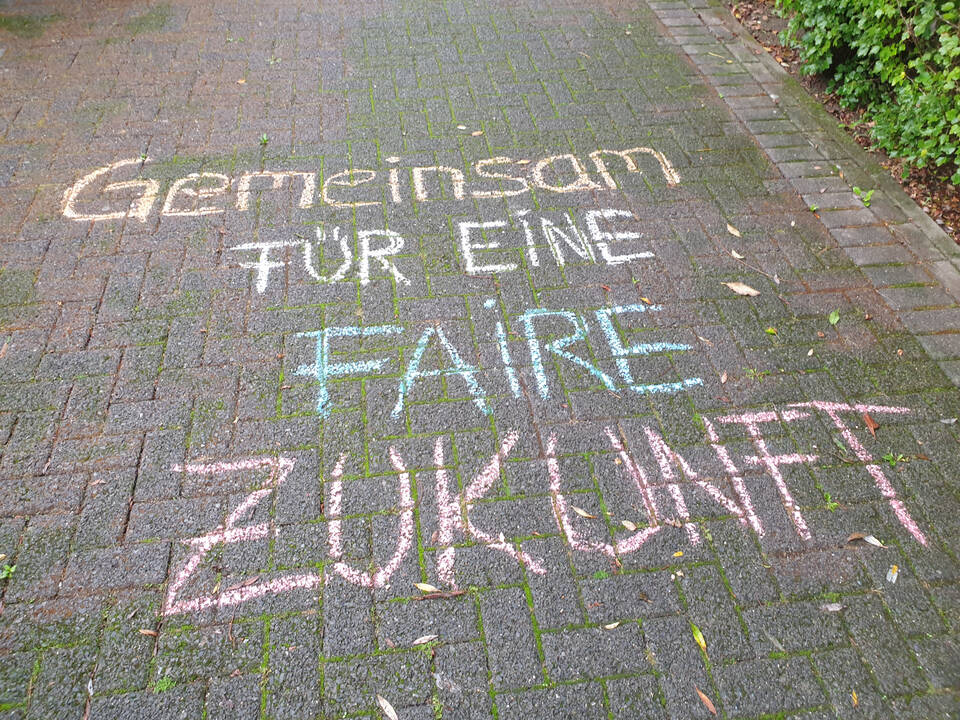 Gemeinsam
FÜR EINE
FAIRE
ZUKUNFT